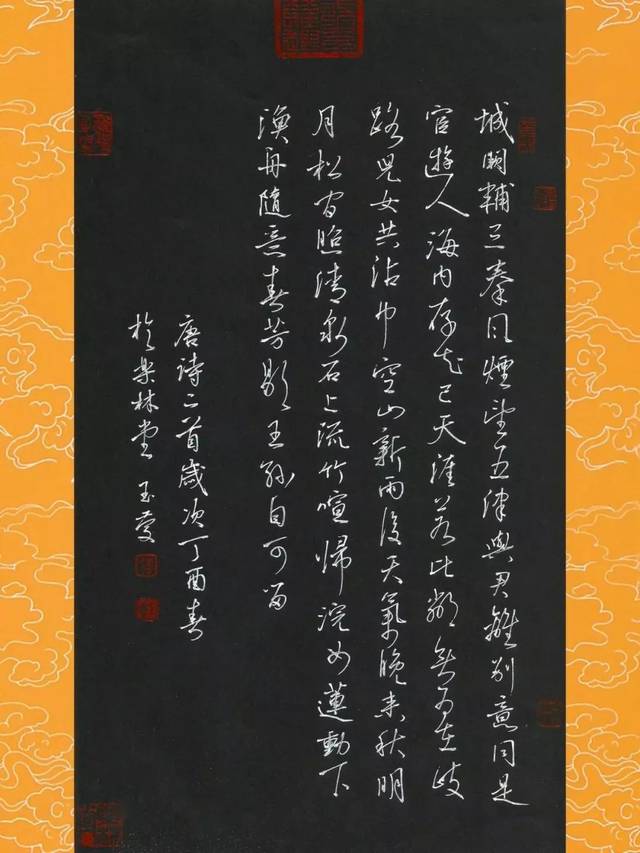 城闕輔三秦風煙望五津與君離別意同是
宦遊人海内存知己天涯若比鄰無為在岐
路兒女共沾巾空山新雨後天氣晚來秋明
月松間照清泉石上流竹喧歸浣女蓮動下
漁舟隨意春芳歇王孫自可留
唐詩二首歲次丁酉春
於樂林堂 玉